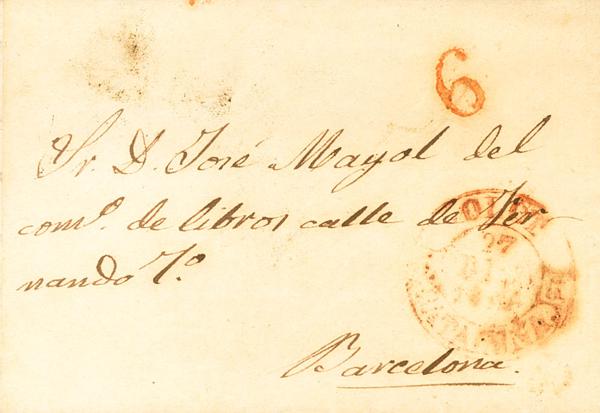 6
Sr. D. José Mayol del
comº. de libros calle de Fer
nando 7º.
27
Barcelona.